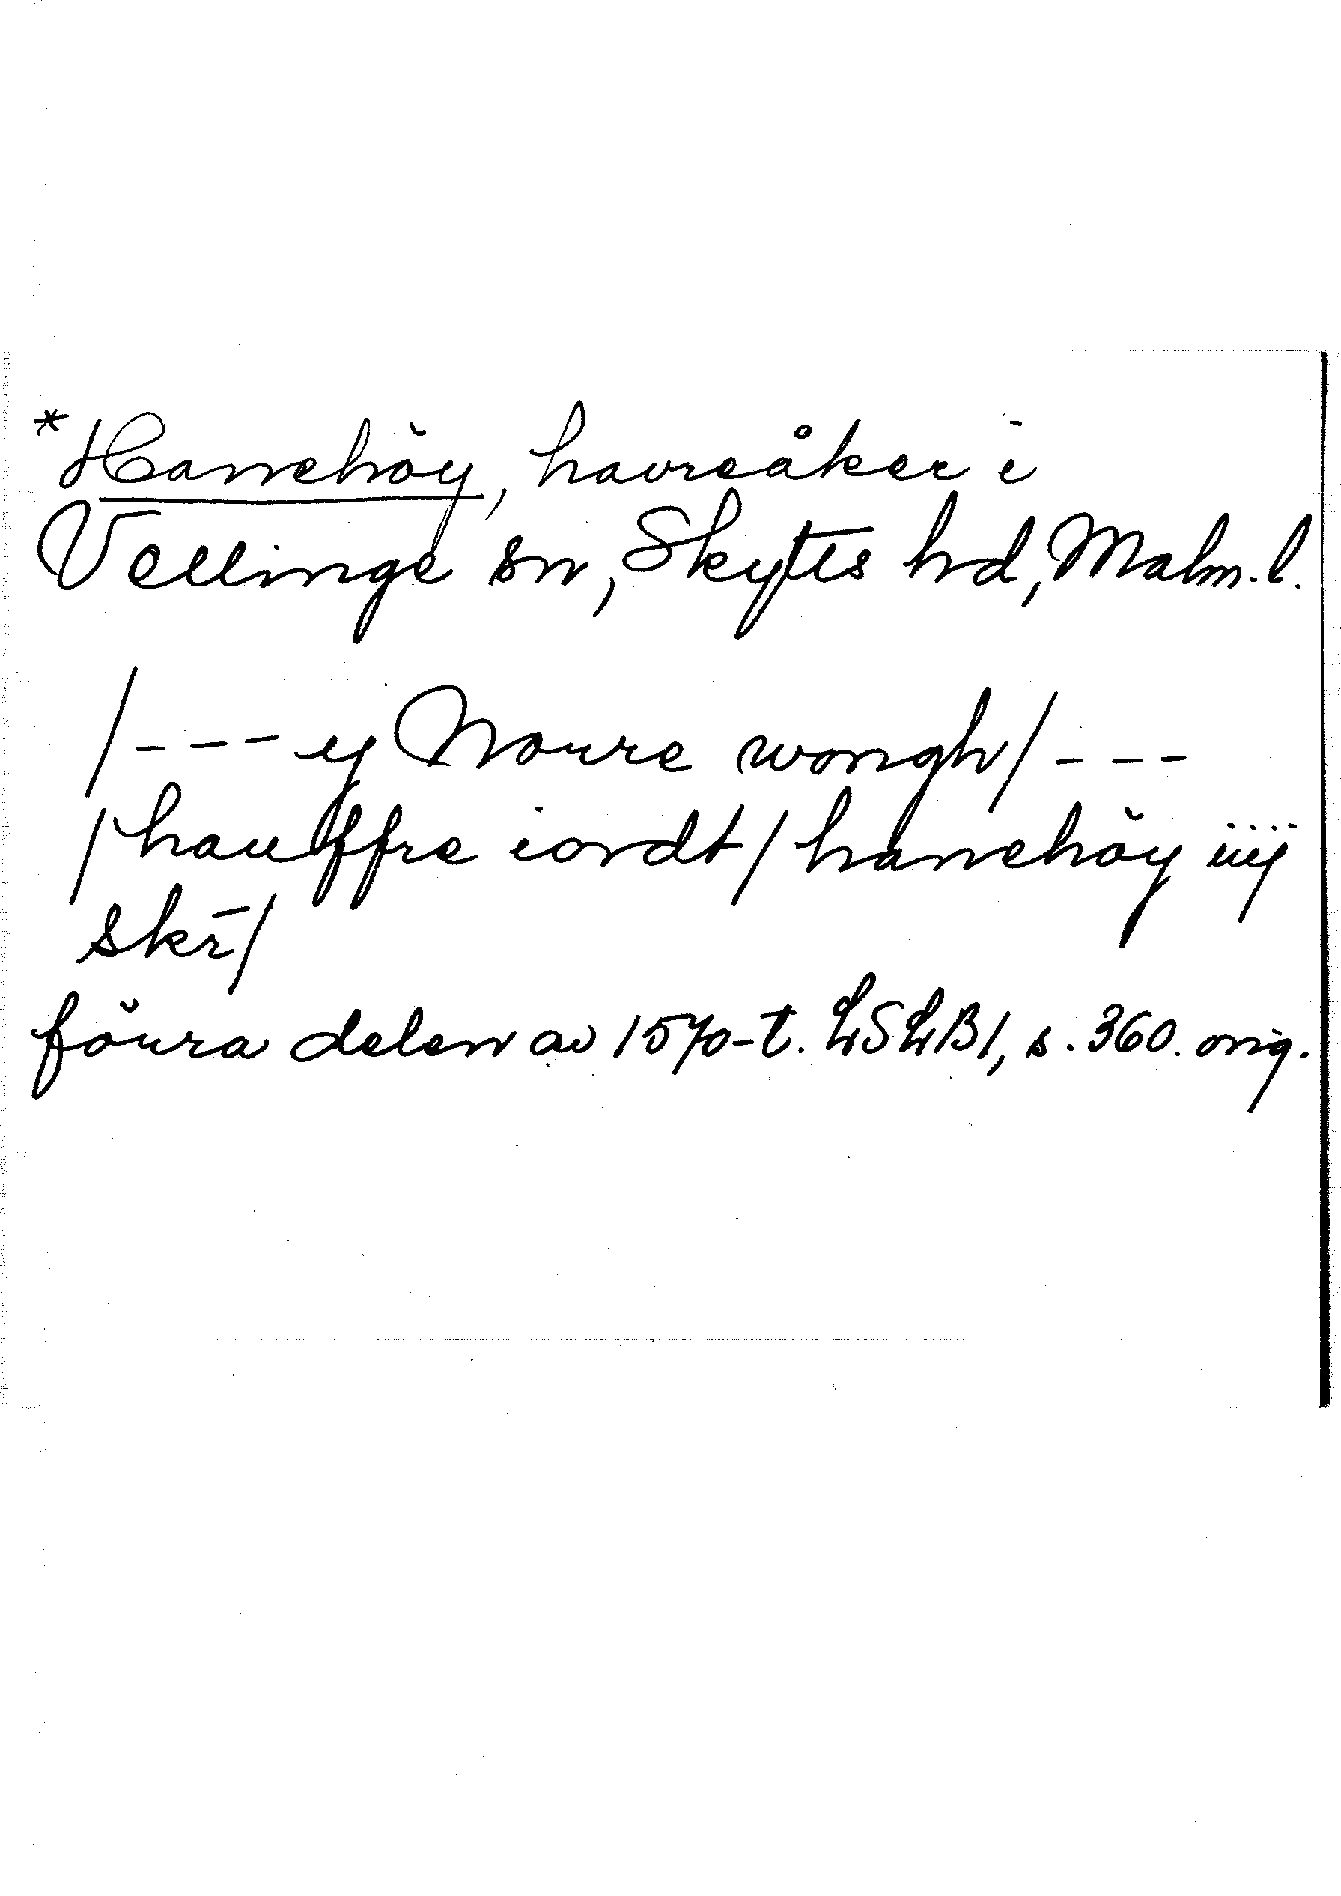 *Hanehöy, havreåker i
Vellinge sn, Skytts hd, Malm. l.
/--- y Norre wongh/---
/hauffre iordt/hanehöy iiij
skr̄/
förra delen av 1570-t. LSLB1, s. 360. orig.